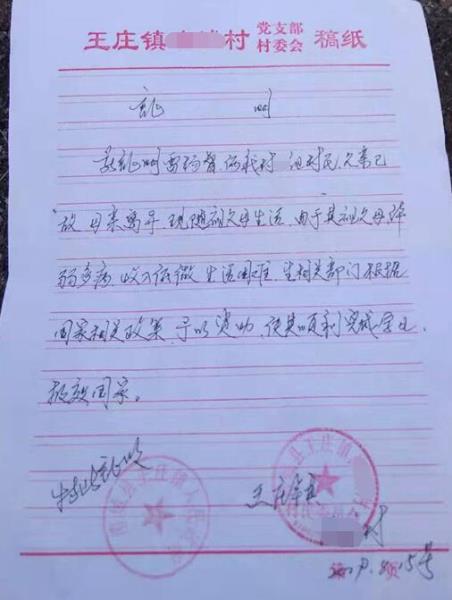 王庄镇 村 党支部 村委会 稿纸
证 明
兹证明雷 系我村 组村民,父亲已
故,母亲离异,现随祖父母生活,由于其祖父母体
弱多病,收入低微,生活困难,望相关部门根据
国家相关政策,予以资助,使其顺利完成学业,
报效国家。
特此证明
王庄镇
村
15号